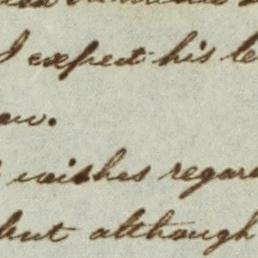 I expect his le
wishes regard
but although